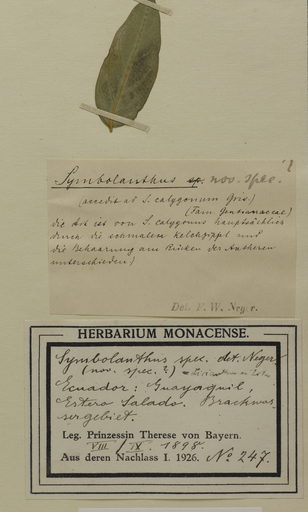 Symbolanthus sp. nov. spec. ?
(accedit ad S. calygonum Gris.)
(Fam. Gentianaceae)
die Art ist von S. calygonus hauptsächlich
durch die schmalen Kelchzipfel und
die Behaarung am Rücken der Antheren
unterschieden)
Det. F. W. Neger.
HERBARIUM MONACENSE.
Symbolanthus spec. det. Neger
(nov. spec. ?)
Ecuador: Guayaquil,
Estero Salado. Brackwas-
sergebiet.
Leg. Prinzessin Therese von Bayern.
VIII / IX. 1898.
Aus deren Nachlass I. 1926. No 247.